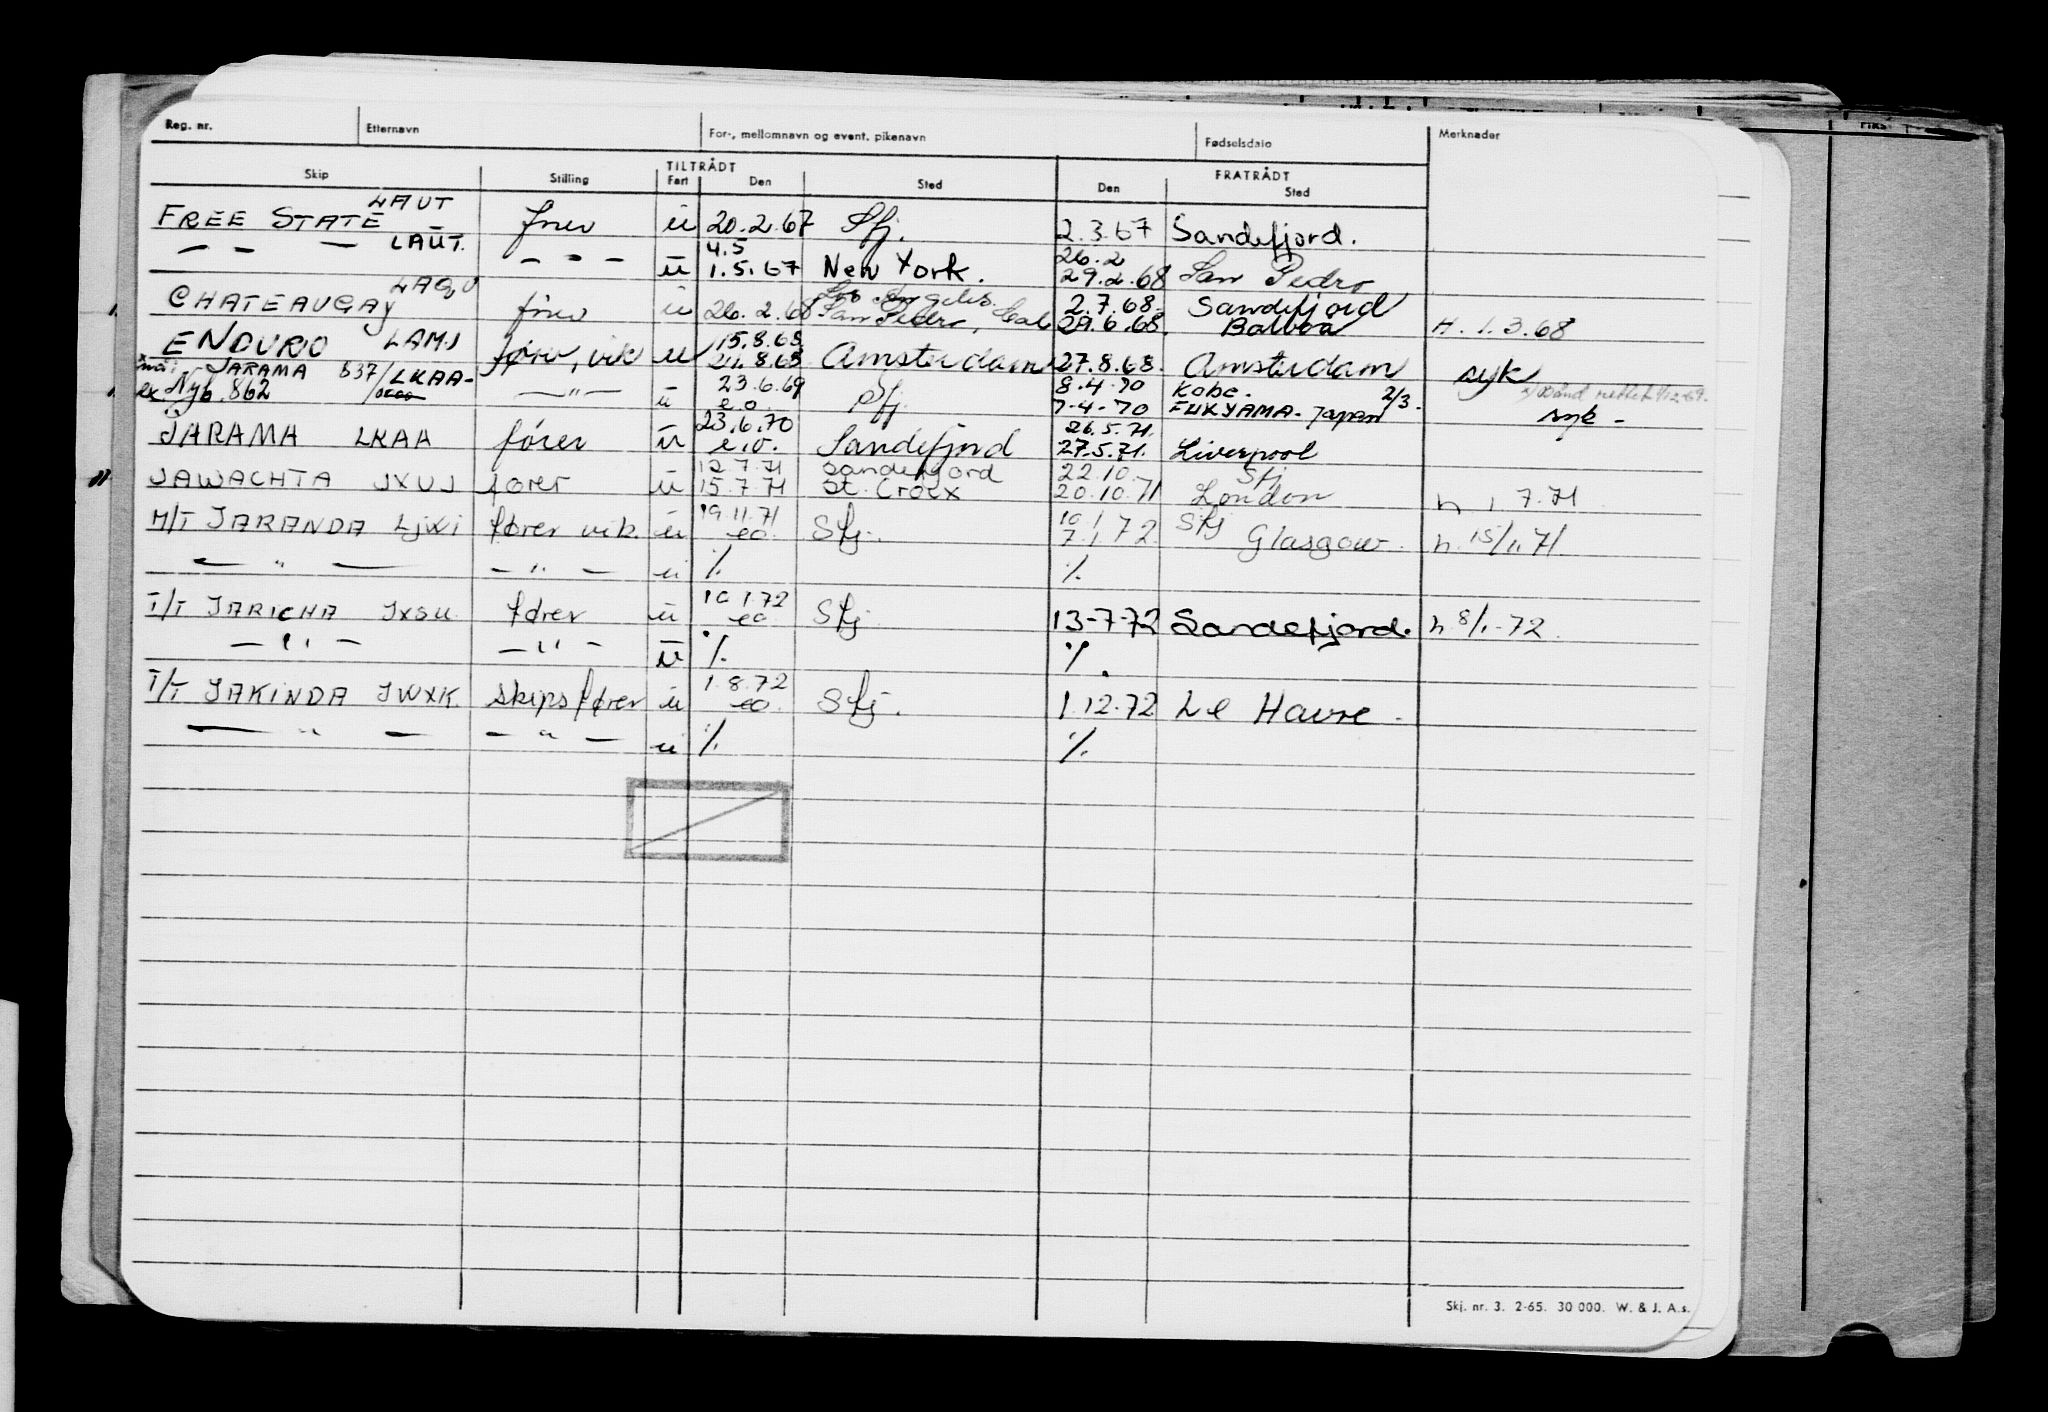 Reg. nr. Etternavn For-, mellomnavn og event. pikenavn Fødselsdato Merknader
TILTRÅDT FRATRÅDT
Skip Stilling Fart Den Sted Den Sted
LAUT
FREE STATE fører u 20.2.67 Sfj. 2.3.67 Sandefjord.
4.5 26.2
— — — LAUT. — " — u 1.5.67 New York. 29.2.68 San Pedro
LAQU Los Angeles. 2.7.68. Sandefjord
CHATEAUGAY fører u 26.2.68 San Pedro, Cal 29.6.68. Balboa H. 1.3.68
15.8.68
ENDURO LAMJ fører, vik u 21.8.68 Amsterdam 27.8.68. Amsterdam syk
JARAMA 537/LKAA- 23.6.69 8.4.70 Kobe. 2/3-
ex Nyb. 862 — " — u e.o. Sfj. 7-4-70 FUKYAMA - Japan syk -
23.6.70 26.5.71.
JARAMA LKAA fører u e.o. Sandefjord 27.5.71. Liverpool
12.7.71 Sandefjord 22.10. Sfj
JAWACHTA JXUJ fører u 15.7.71 St. Croix 20.10.71 London h 1 7.71
19.11.71 10.1 Sfj
M/T JARANDA LJWI fører vik. u eo. Sfj. 7.1.72 Glasgow. h. 15/11.71
— " — — " — u ./. ./.
10.1.72
T/T JARICHA JXSU. fører u eo. Sfj 13-7-72 Sandefjord. h 8/1-72.
— " — — " — u ./. ./.
1.8.72
T/T JAKINDA JWXK. skipsfører u eo. Sfj. 1.12.72 Le Havre.
— " — — " — u ./. ./.
Skj. nr. 3. 2-65. 30 000. W. & J. A.s.